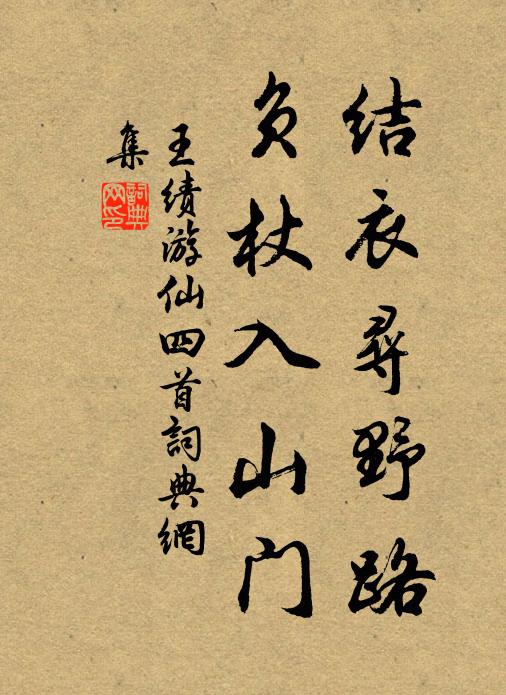 结衣寻野路
负杖入山门
王绩游仙四首詞典網
集
詞典
网印